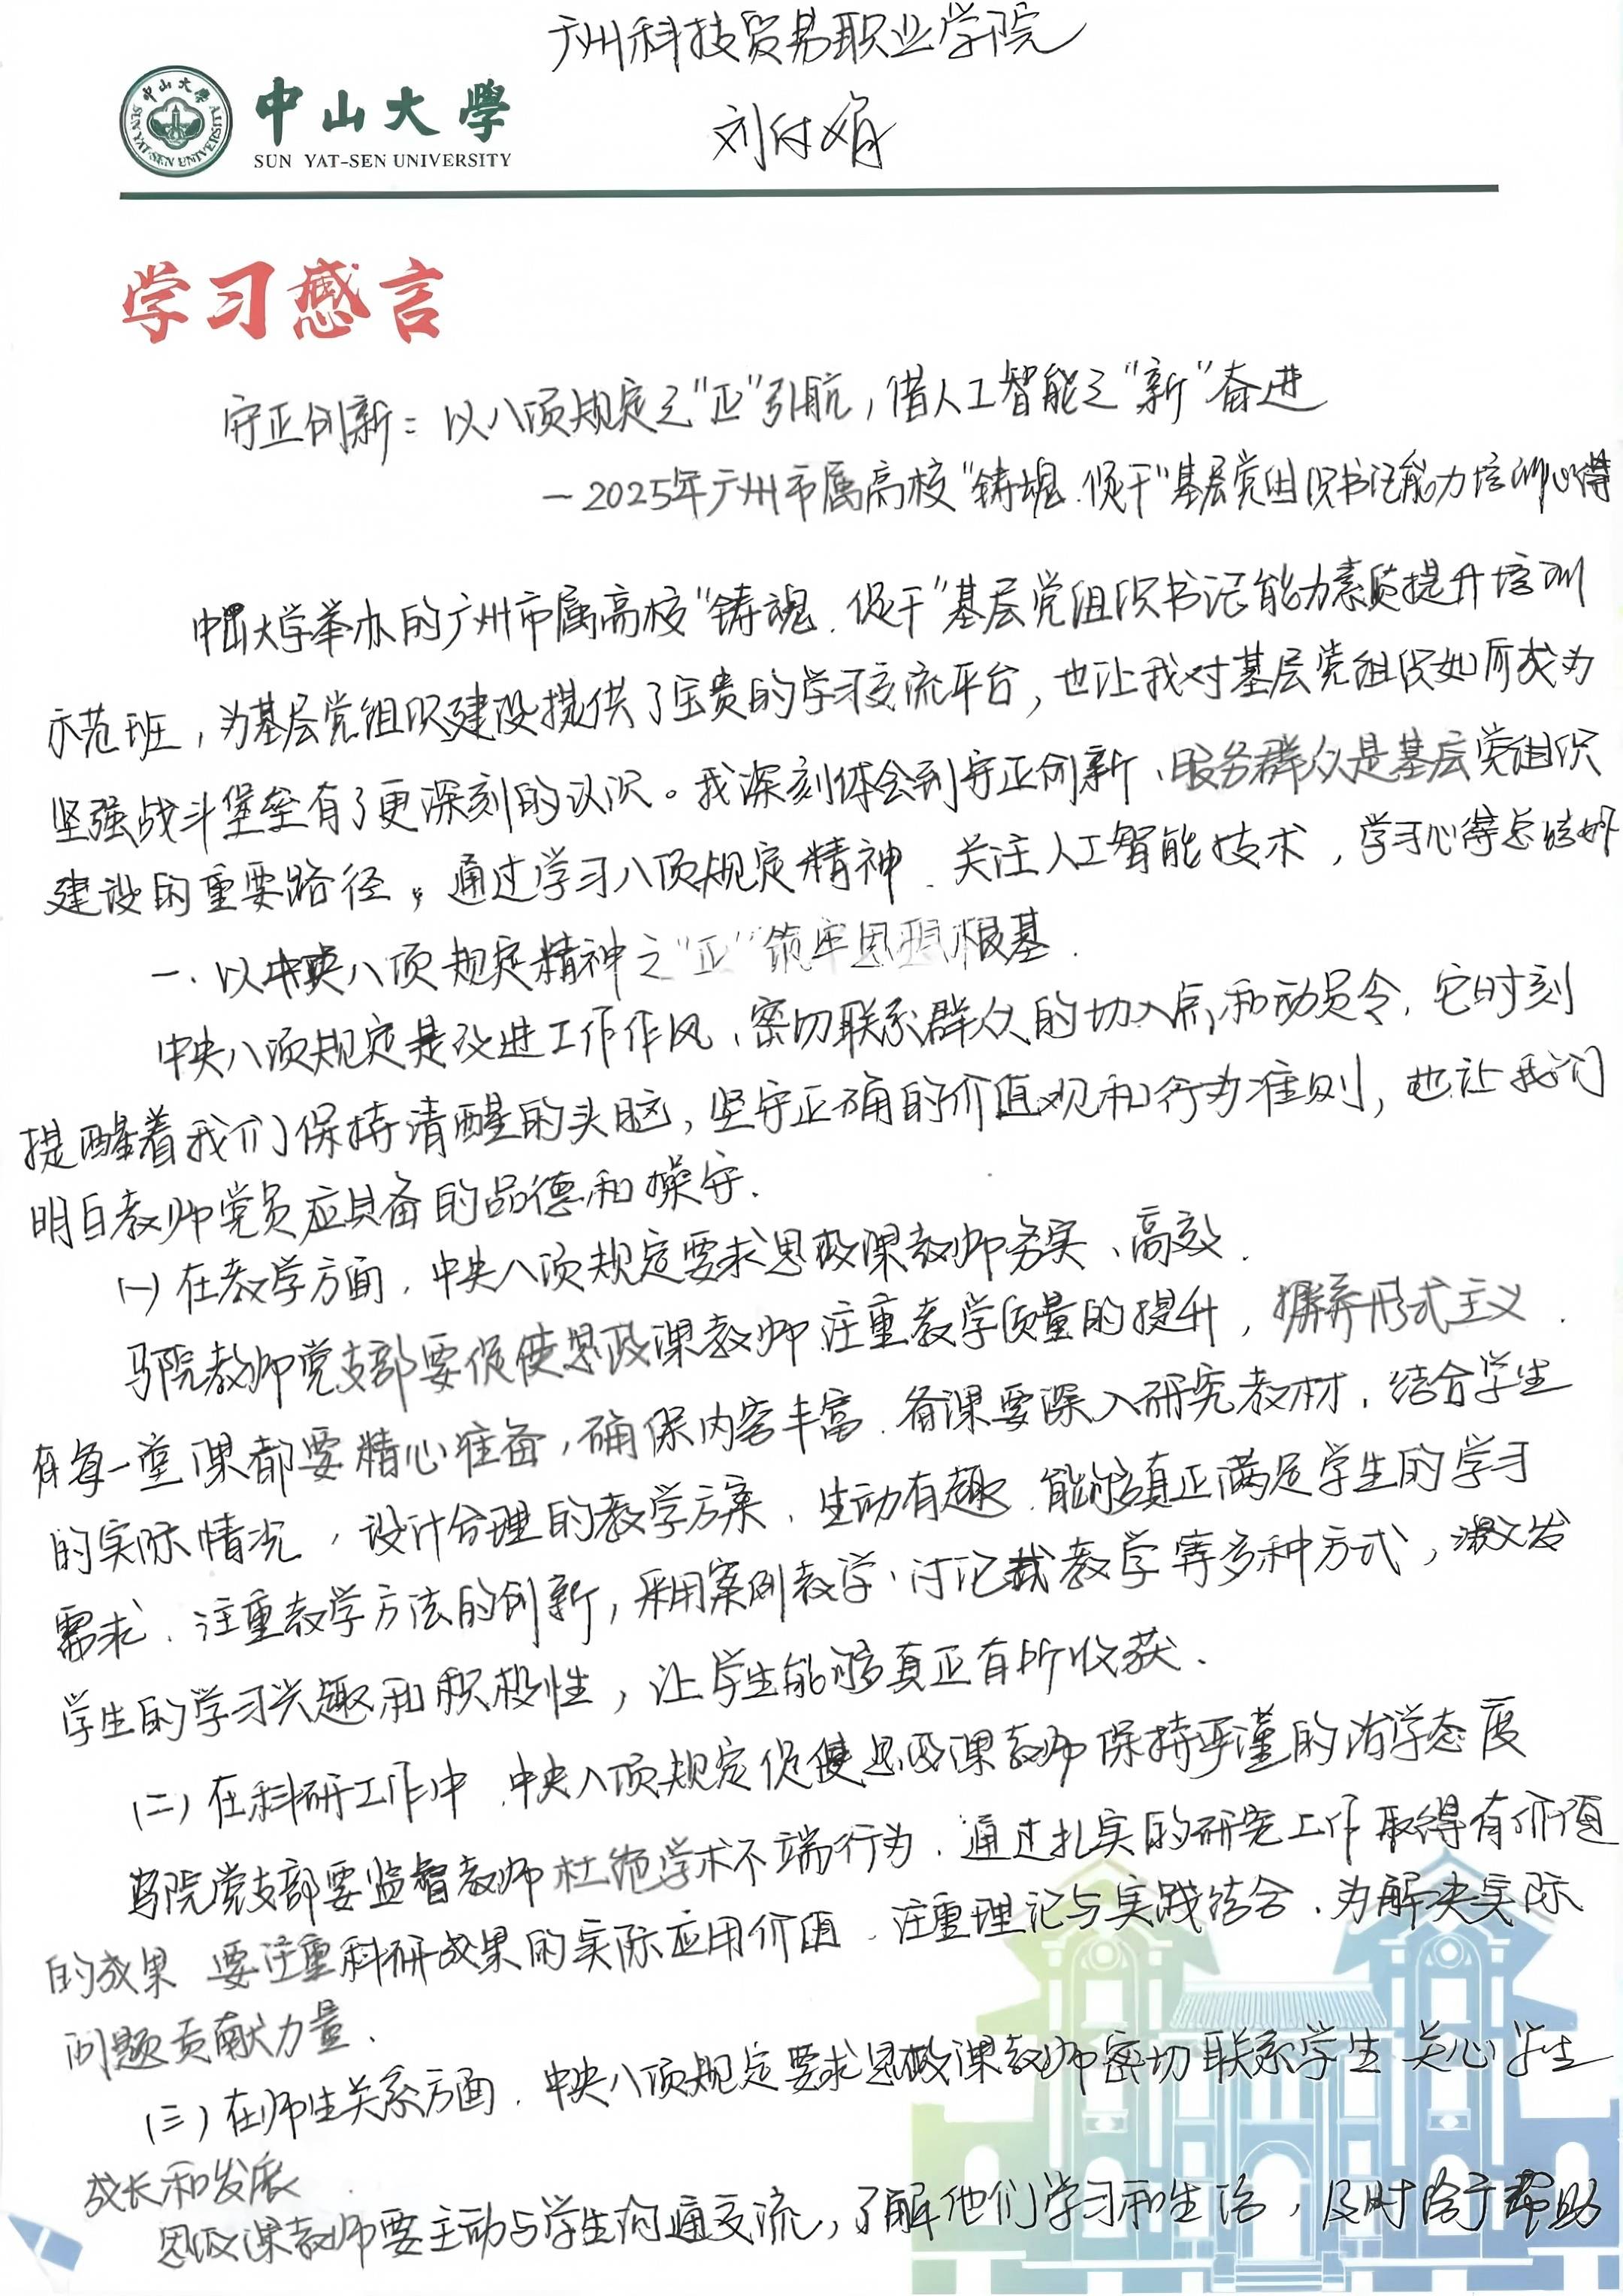 广州科技贸易职业学院
中山大學
SUN YAT-SEN UNIVERSITY
刘付娟
学习感言
守正创新：以八项规定之"正"引航，借人工智能之"新"奋进
—2025年广州市属高校"铸魂、促干"基层党组织书记能力培训心得
中山大学举办的广州市属高校"铸魂、促干"基层党组织书记能力素质提升培训
示范班，为基层党组织建设提供了宝贵的学习交流平台，也让我对基层党组织如何成为
坚强战斗堡垒有了更深刻的认识。我深刻体会到守正创新、服务群众是基层党组织
建设的重要路径。通过学习八项规定精神、关注人工智能技术，学习心得总结如下
一、以中央八项规定精神之"正"筑牢思想根基.
中央八项规定是改进工作作风、密切联系群众的切入点和动员令，它时刻
提醒着我们保持清醒的头脑，坚守正确的价值观和行为准则，也让我们
明白教师党员应具备的品德和操守.
(一)在教学方面，中央八项规定要求思政课教师务实、高效.
马院教师党支部要促使思政课教师注重教学质量的提升，摒弃形式主义.
在每一堂课都要精心准备，确保内容丰富.备课要深入研究教材，结合学生
的实际情况，设计合理的教学方案、生动有趣.能够真正满足学生的学习
需求.注重教学方法的创新，采用案例教学、讨论教学等多种方式，激发
学生的学习兴趣和积极性，让学生能够真正有所收获.
(二)在科研工作中，中央八项规定促使思政课教师保持严谨的治学态度
马院党支部要监督教师杜绝学术不端行为.通过扎实的研究工作取得有价值
的成果 要注重科研成果的实际应用价值、注重理论与实践结合.为解决实际
问题贡献力量.
(三)在师生关系方面，中央八项规定要求思政课教师密切联系学生 关心学生
成长和发展
思政课教师要主动与学生沟通交流，了解他们学习和生活，及时给予帮助